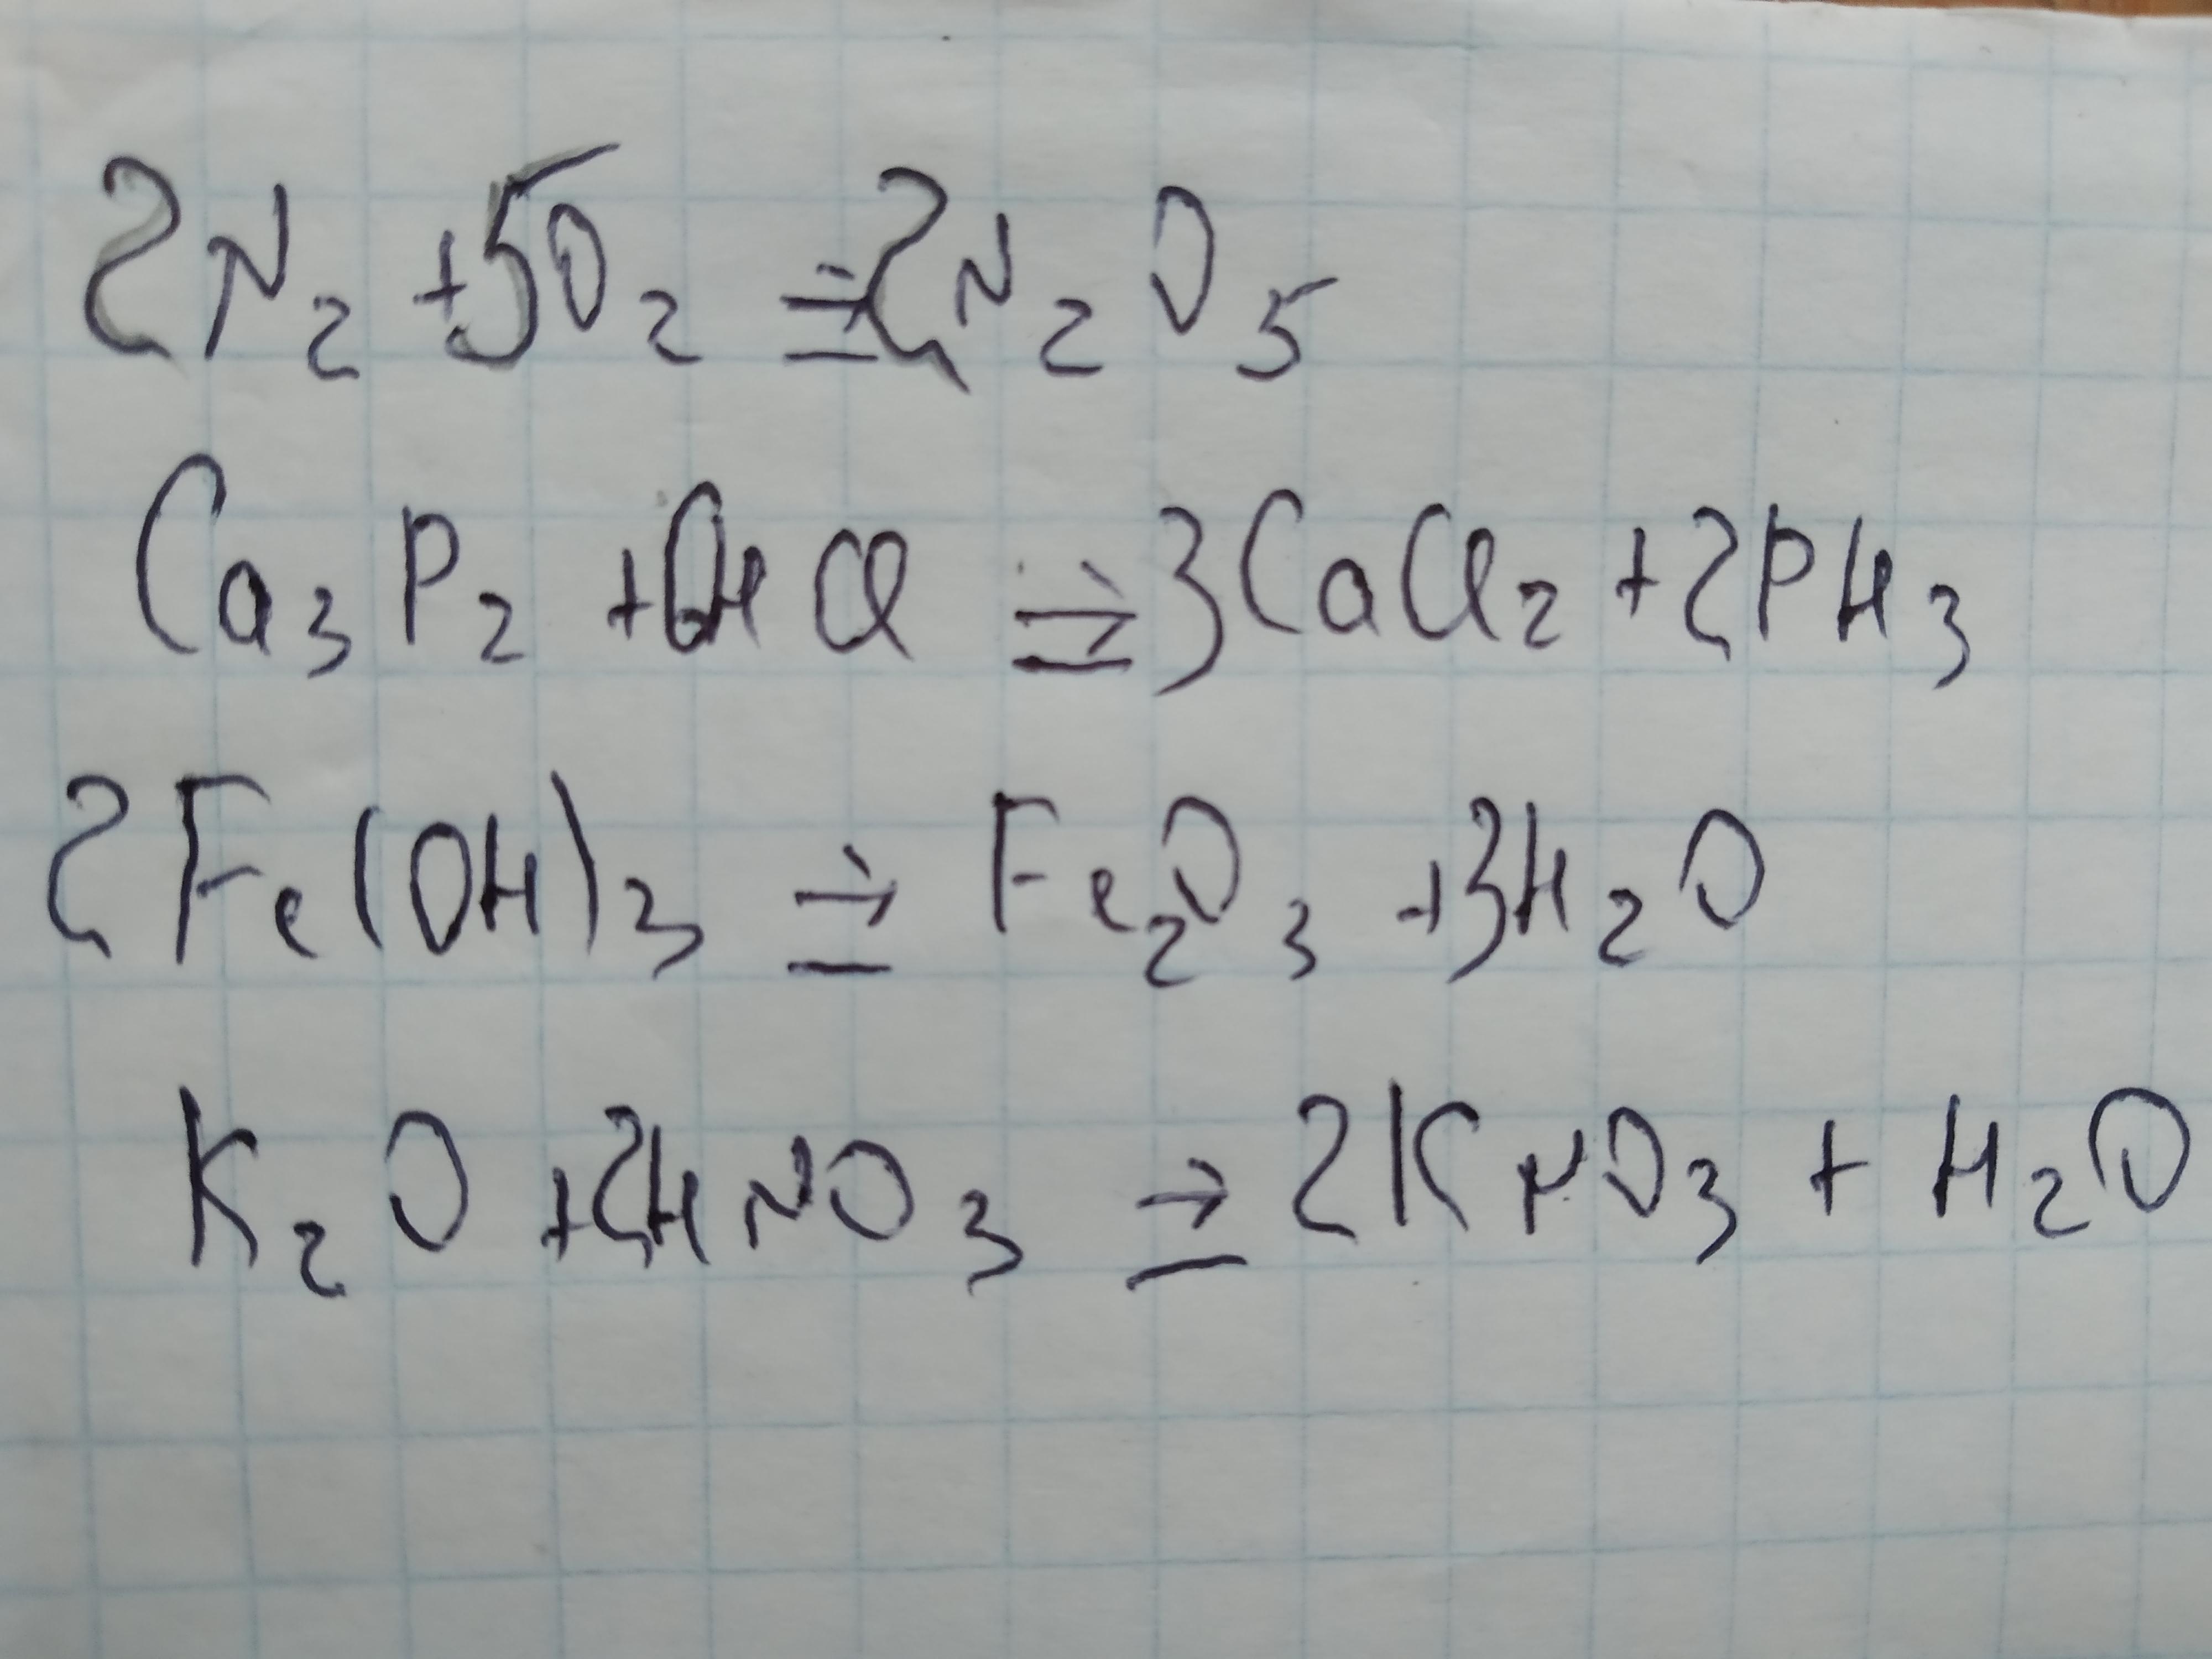 2N₂ + 5O₂ ⇒ 2N₂O₅
Ca₃P₂ + 6HCl ⇒ 3CaCl₂ + 2PH₃
2Fe(OH)₃ ⇒ Fe₂O₃ + 3H₂O
K₂O + 2HNO₃ ⇒ 2KNO₃ + H₂O